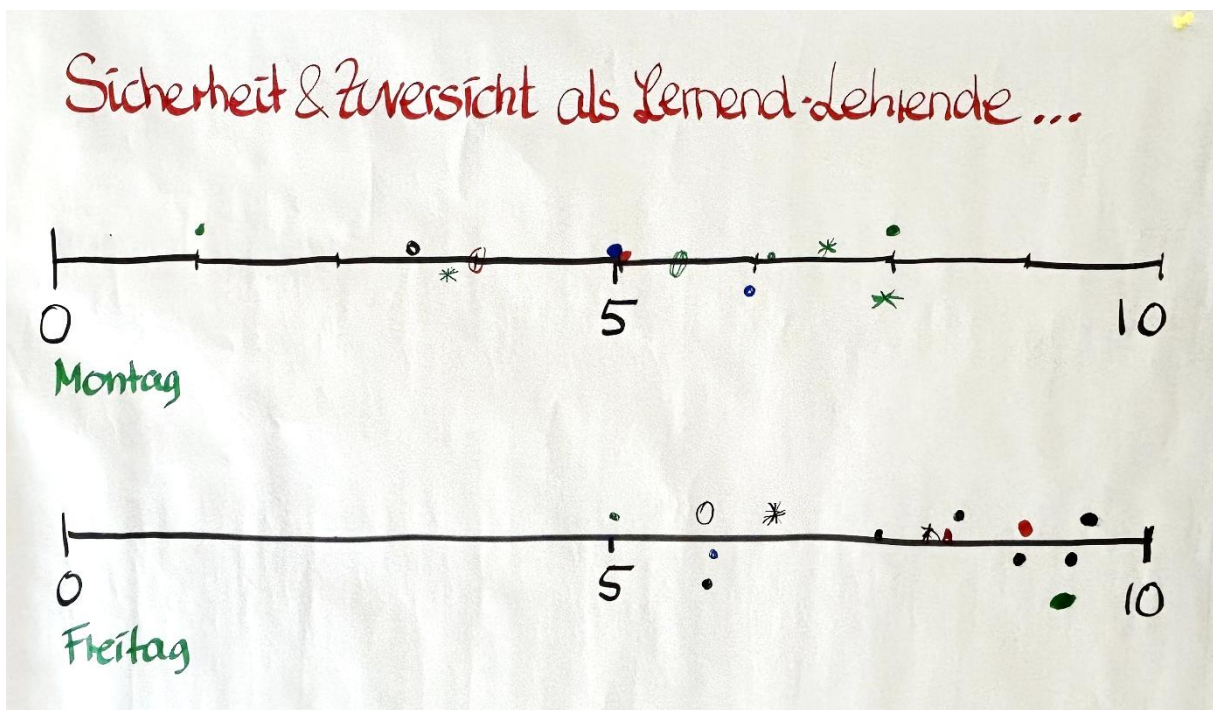 Sicherheit & Zuversicht als Lernend-Lehrende...
0 5 10
Montag
0 5 10
Freitag